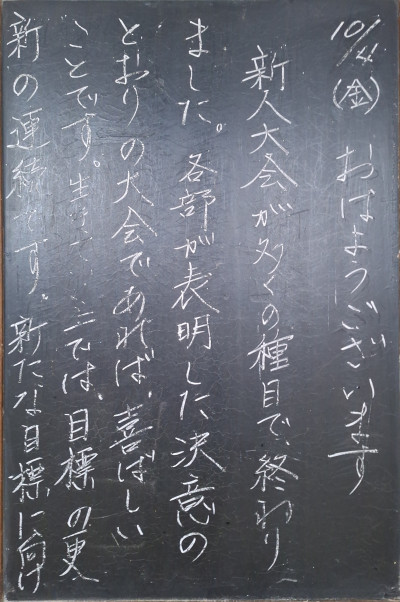 10/4(金) おはようございます
新人大会が多くの種目で、終わり
ました。各部が表明した決意の
とおりの大会であれば、喜ばしい
ことです。生では、目標の更
新の連続です。新たな目標に向け